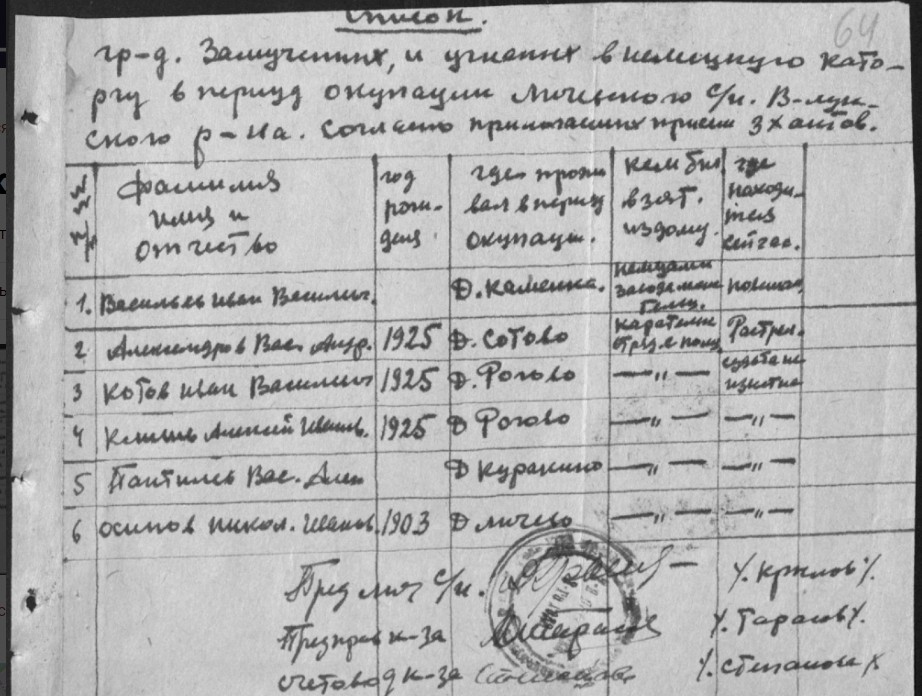 Список.
64
гр-д. Замученных, и угнанных в немецкую като-
ргу в период окупации Личенского с/с.
ского р-на. Согласно прилагаемых при сем 3х актов.
№№
п/п
фамилия
имя и
отчество
год
рожде-
дения
где прожи
вал в период
окупации.
кем был
взят.
из дому.
где
находи-
тся
сейчас.
1. Васильев Иван Васильев. Д. Каменка. немцами
2 Александров Вас. Андр. 1925 Д. Сотово карателн отряд Растрел.
3 Котов Иван Васильич 1925 Д. Рогово —„— судьба не известна
4 Алексей Иванов. 1925 Д Рогово —„— —„—
5 Вас. Д Куракино —„— —„—
6 Осипов Никол. Иванов. 1903 Д Личево —„— —„—
Пред лич с/с. /. Крылов /.
к-за /. Тарасов /.
Счетовод к-за /. Степанова /